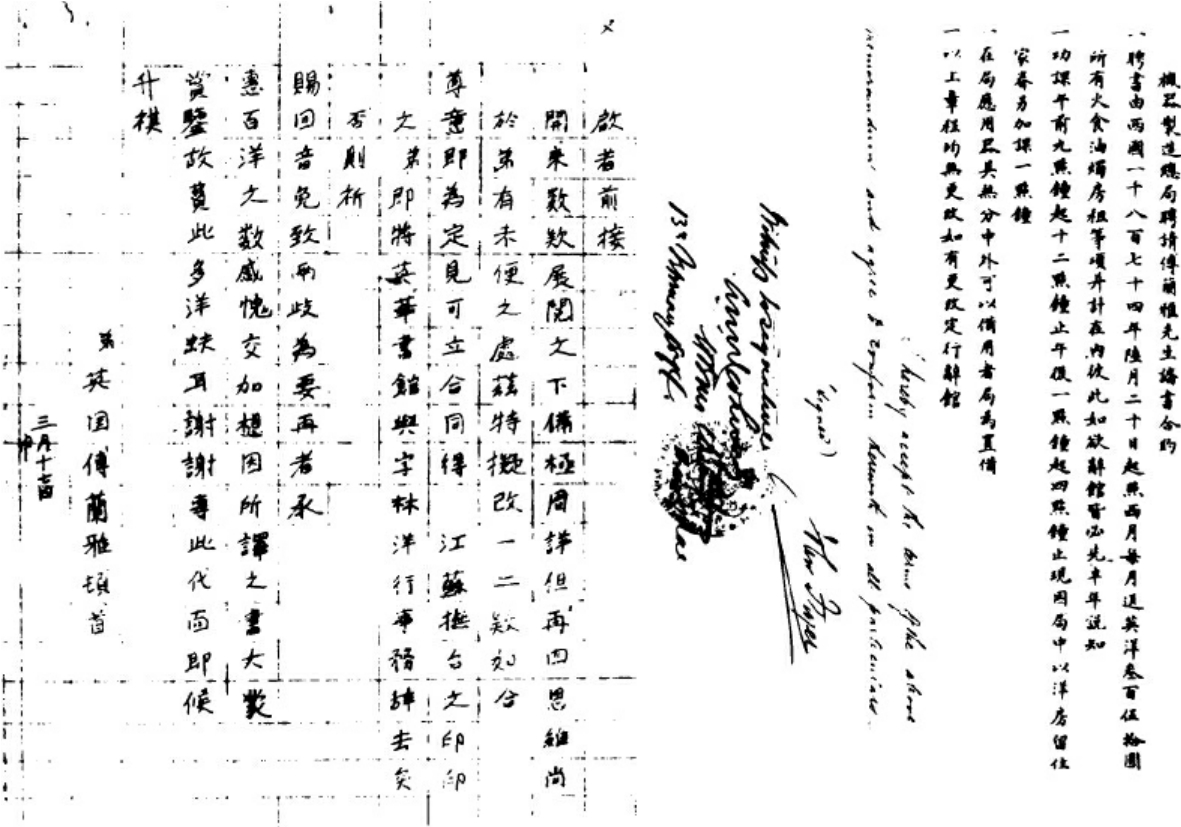 機器製造總局聘請傅蘭雅先生議書合約
一聘書由西國一千八百七十四年陸月二十日起照西月每月送英洋叁百伍拾圓
所有火食油燭房租等項并計在內彼此如欲辭館皆必先半年說知
一功課午前九點鐘起十二點鐘止午後一點鐘起四點鐘止現因局中以洋房留住
家眷另加課一點鐘
一在局應用器具無分中外可以備用者局為置備
一以上章程均無更改如有更改定行辭館
I hereby accept the terms of the above
memorandum and agree to conform herewith in all particulars
(signed) John Fryer
啟者前接
開來數欵展閱之下備極周詳但再四思維尚
於弟有未便之處茲特擬改一二欵如合
尊意即為定見可立合同得 江蘇撫台之印印
之弟即將英華書館與字林洋行事務辭去矣
否則祈
賜回音免致兩歧為要再者承
惠百洋之數感愧交加想因所譯之書大蒙
賞鑒故費此多洋蚨耳謝謝專此代面即候
升祺
弟英国傅蘭雅頓首